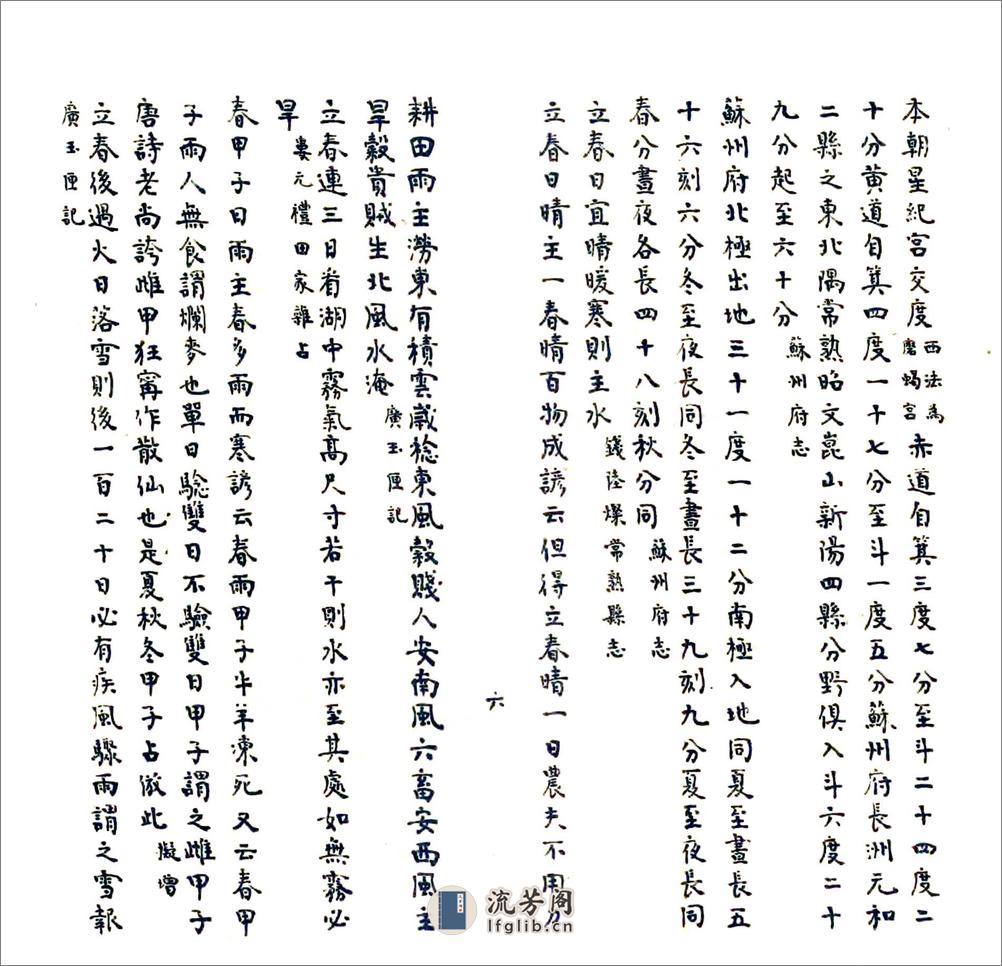 本朝星紀宮交度西法為磨蝎宮赤道自箕三度七分至斗二十四度二
十分黃道自箕四度一十七分至斗一度五分蘇州府長洲元和
二縣之東北隅常熟昭文崑山新陽四縣分野俱入斗六度二十
九分起至六十分蘇州府志
蘇州府北極出地三十一度一十二分南極入地同夏至晝長五
十六刻六分冬至夜長同冬至晝長三十九刻九分夏至夜長同
春分晝夜各長四十八刻秋分同蘇州府志
立春日宜晴暖寒則主水錢陸燦常熟縣志
立春日晴主一春晴百物成諺云但得立春晴一日農夫不用力
六
耕田雨主澇東有積雲歲稔東風穀賤人安南風六畜安西風主
旱穀貴賊生北風水淹廣玉匣記
立春連三日看湖中霧氣高尺寸若干則水亦至其處如無霧必
旱婁元禮田家雜占
春甲子日雨主春多雨而寒諺云春雨甲子牛羊凍死又云春甲
子雨人無食謂爛麥也單日驗雙日不驗雙日甲子謂之雌甲子
唐詩老尚誇雌甲狂甯作散仙也是夏秋冬甲子占倣此擬增
立春後遇火日落雪則後一百二十日必有疾風驟雨謂之雪報
廣玉匣記
流芳阁
lfglib.cn